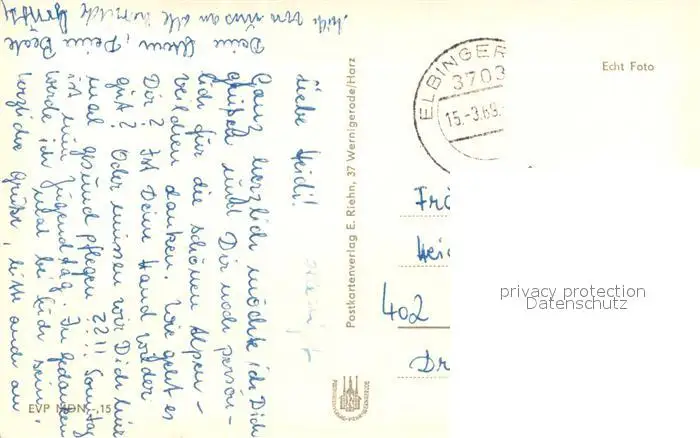 Liebe Heidi!
Ganz herzlich möchte ich Dich
grüßen und Dir noch persön-
lich für die schönen Alpen-
veilchen danken. Wie geht es
Dir? Ist Deine Hand wieder
gut? Oder müssen wir Dich hier
mal gesund pflegen ??!! Sonntag
ist nun Jugendtag. In Gedanken
werde ich mal bei Euch sein.
Herzliche Grüße, bitte auch an
Deine Beate
von uns an alle
Postkartenverlag E. Riehn, 37 Wernigerode/Harz
EVP MDN -,15
ELBINGER
3703
15.-3.69.
Echt Foto
Frö
Heid
402
Dr
privacy protection
Datenschutz